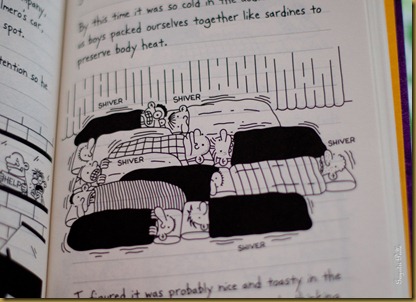 mpany,
lmero's car,
spot.
tention so he
HELP
By this time it was so cold in the
us boys packed ourselves together like sardines to
preserve body heat.
SHIVER
SHIVER
SHIVER
SHIVER
SHIVER
I figured it was probably nice and toasty in the